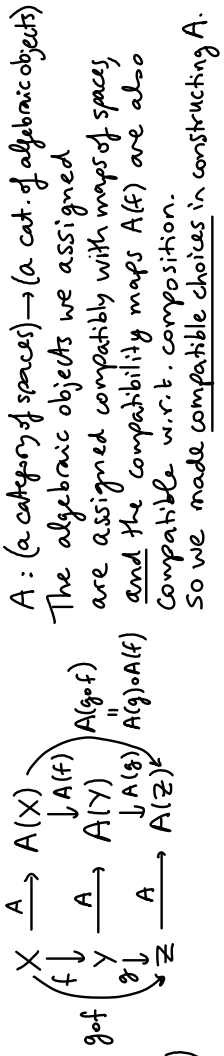 X —A→ A(X)
gof f↓ ↓A(f) A(gof)
Y —A→ A(Y) =
g↓ ↓A(g) A(g)∘A(f)
Z —A→ A(Z)
)
A : (a category of spaces) → (a cat. of algebraic objects)
The algebraic objects we assigned
are assigned compatibly with maps of spaces,
and the compatibility maps A(f) are also
compatible w.r.t. composition.
So we made compatible choices in constructing A.